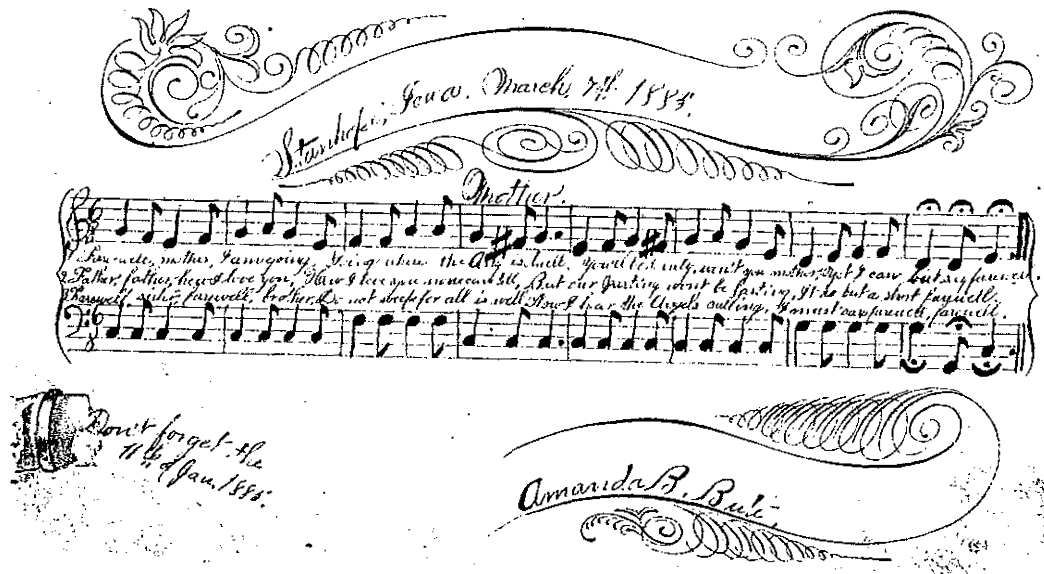 Stanhope, Iowa. March 7th 1885.
Mother.
1 Farewell, mother, I am going, Going where the is built. You'll be lonely, won't you mother, Yet I can but say farewell.
2 Father, father, how I love you, How I love you none can tell, But our parting won't be lasting, It is but a short farewell.
3 Farewell, sister, farewell, brother, Do not weep for all is well Now I hear the Angels calling, I must say farewell, farewell.
Don't forget the
11th of Jan. 1885.
Amanda B.